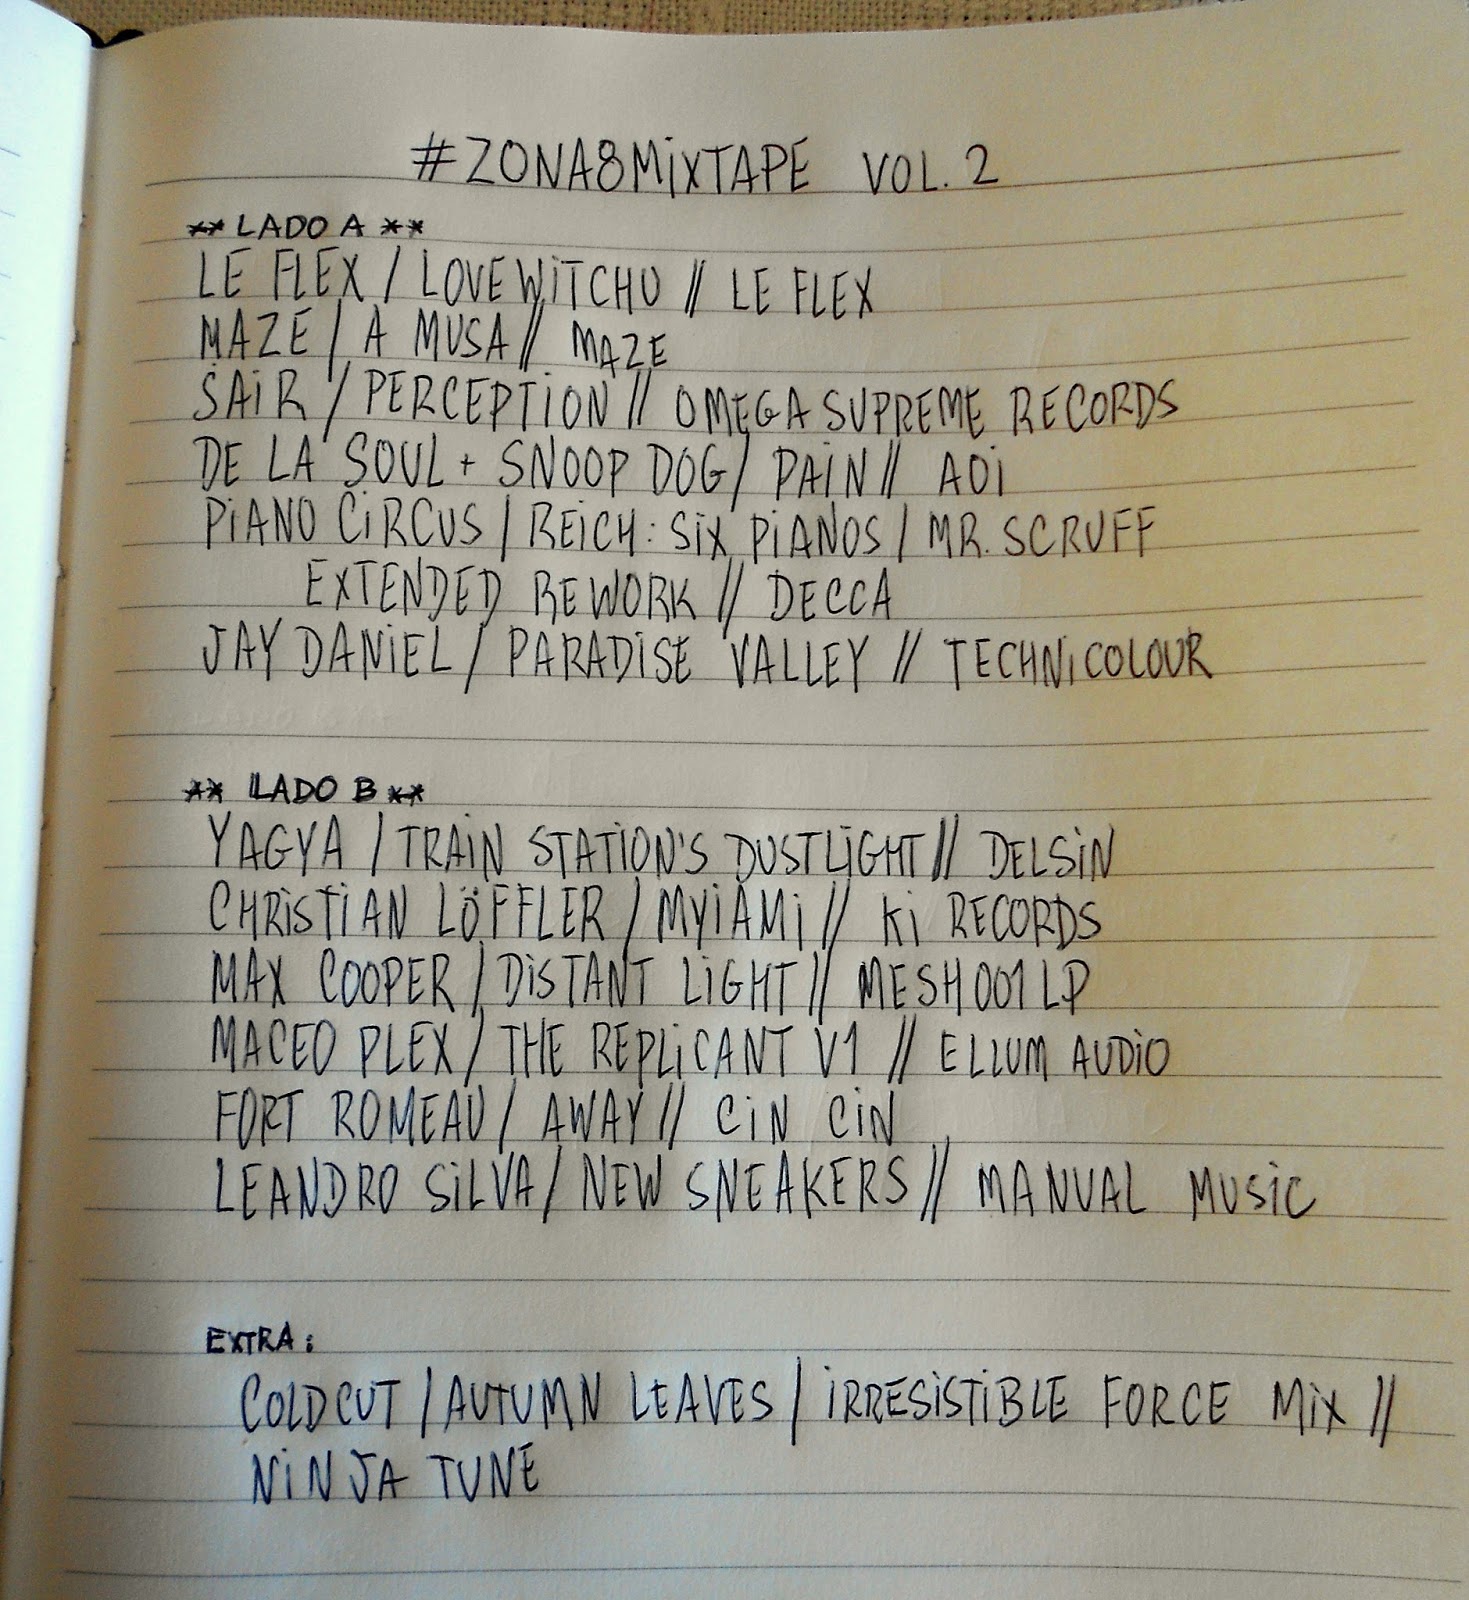 #ZONA8MiXTAPE VOL. 2
** LADO A **
LE FLEX / LOVE WiTCHU // LE FLEX
MAZE / A MUSA // MAZE
SAiR / PERCEPTiON // OMEGA SUPREME RECORDS
DE LA SOUL + SNOOP DOG / PAiN // AOi
PiANO CiRCUS / REiCH: SiX PiANOS / MR. SCRUFF
EXTENDED REWORK // DECCA
JAY DANiEL / PARADiSE VALLEY // TECHNiCOLOUR
** LADO B **
YAGYA / TRAiN STATiON'S DUSTLiGHT // DELSiN
CHRiSTiAN LÖFFLER / MYiAMi // Ki RECORDS
MAX COOPER / DiSTANT LiGHT // MESH001LP
MACEO PLEX / THE REPLiCANT V1 // ELLUM AUDiO
FORT ROMEAU / AWAY // CiN CiN
LEANDRO SiLVA / NEW SNEAKERS // MANUAL MUSiC
EXTRA:
COLDCUT / AUTUMN LEAVES / iRRESiSTiBLE FORCE MiX //
NiNJA TUNE